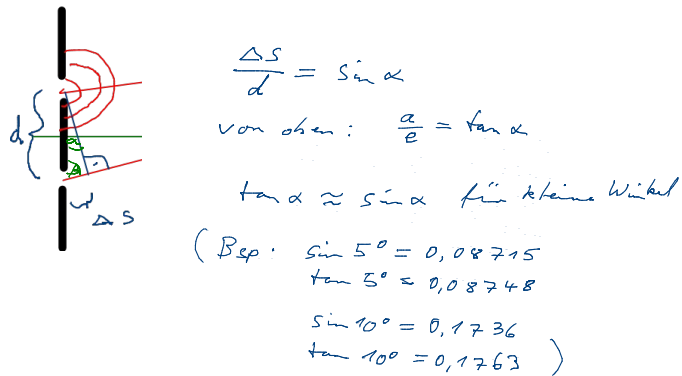 Δs/d = sin α
von oben: a/e = tan α
tan α ≈ sin α für kleine Winkel
(Bsp: sin 5° = 0,08715
tan 5° = 0,08748
sin 10° = 0,1736
tan 10° = 0,1763 )
d
α
Δs